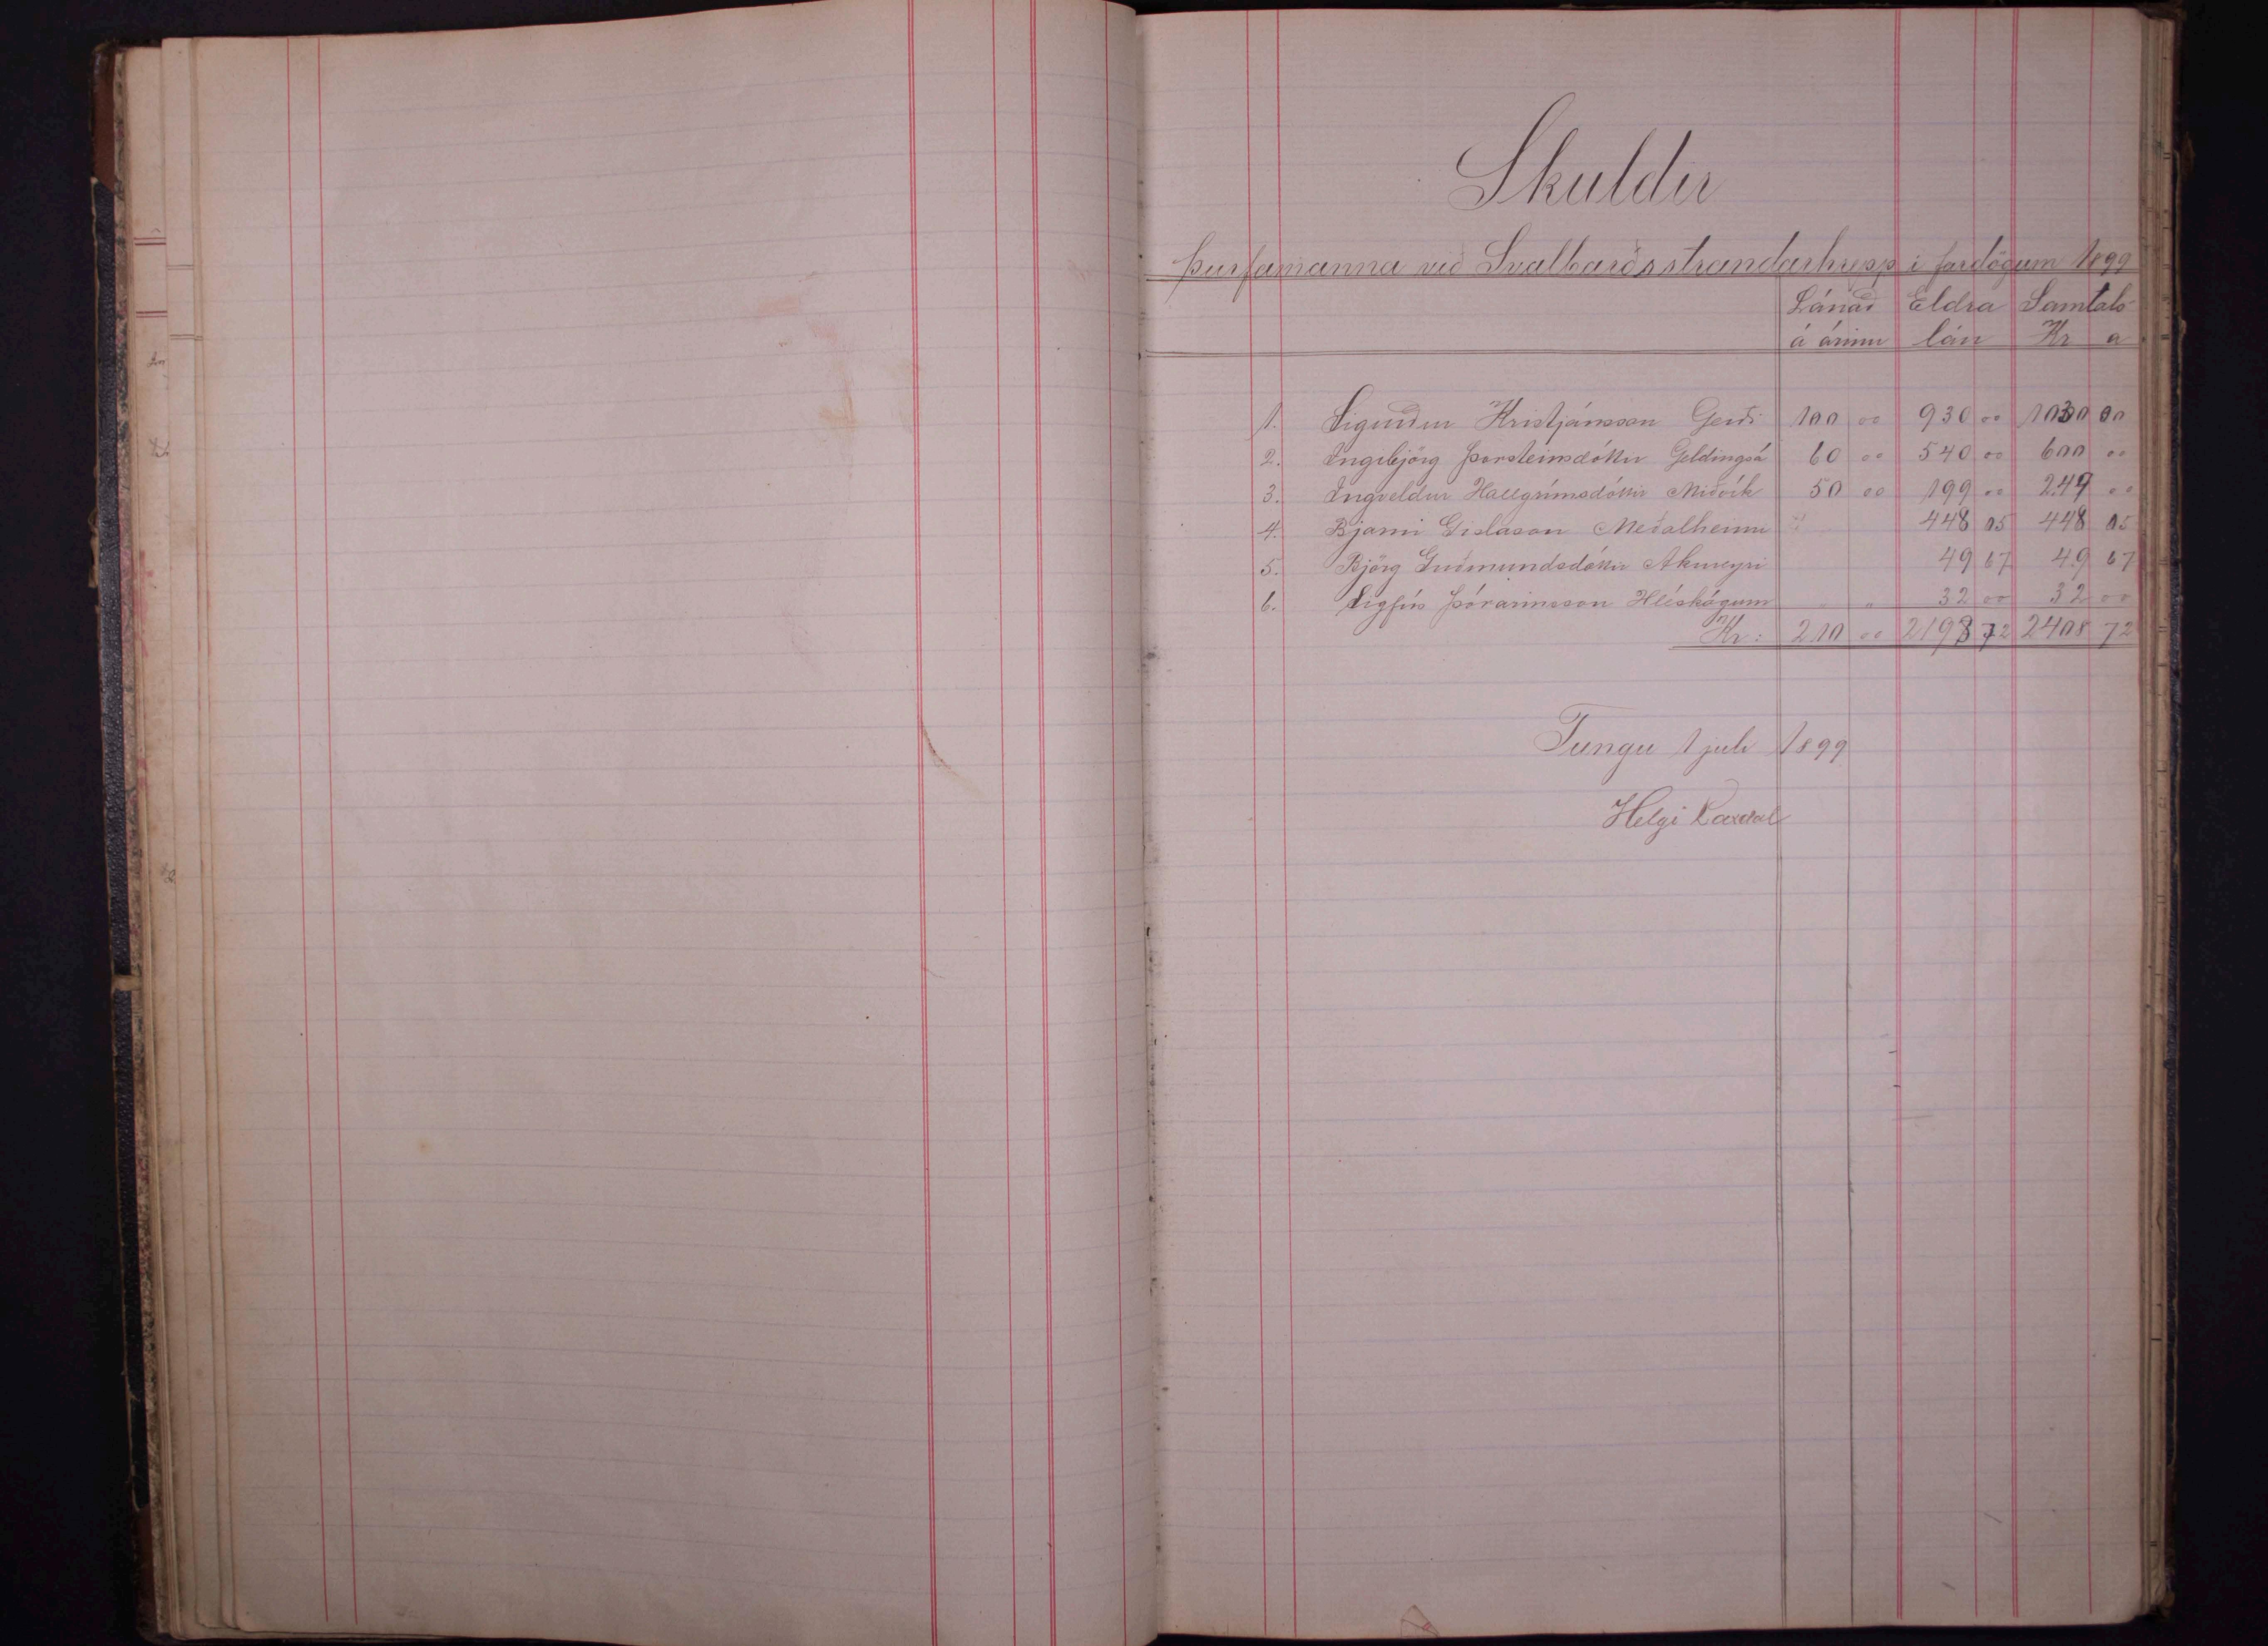 Skuldir
þurfamanna við Svalbarðsstrandarhrepp í fardögum 1899
Lánað Eldra Samtals
á árinu lán Kr a
1. Sigurður Kristjánsson Gerði 100 00 930 00 1030 00
2. Ingibjörg Þorsteinsdóttir Geldingsá 60 00 540 00 600 00
3. Ingveldur Hallgrímsdóttir Miðvík 50 00 199 00 249 00
4. Bjarni Gislason Meðalheimi " 448 05 448 05
5. Björg Guðmundsdóttir Akureyri 49 67 49 67
6. Sigfús Þórarinsson Hléskógum " " 32 00 32 00
Kr: 210 00 2198 72 2408 72
Tungu 1 juli 1899
Helgi Laxdal